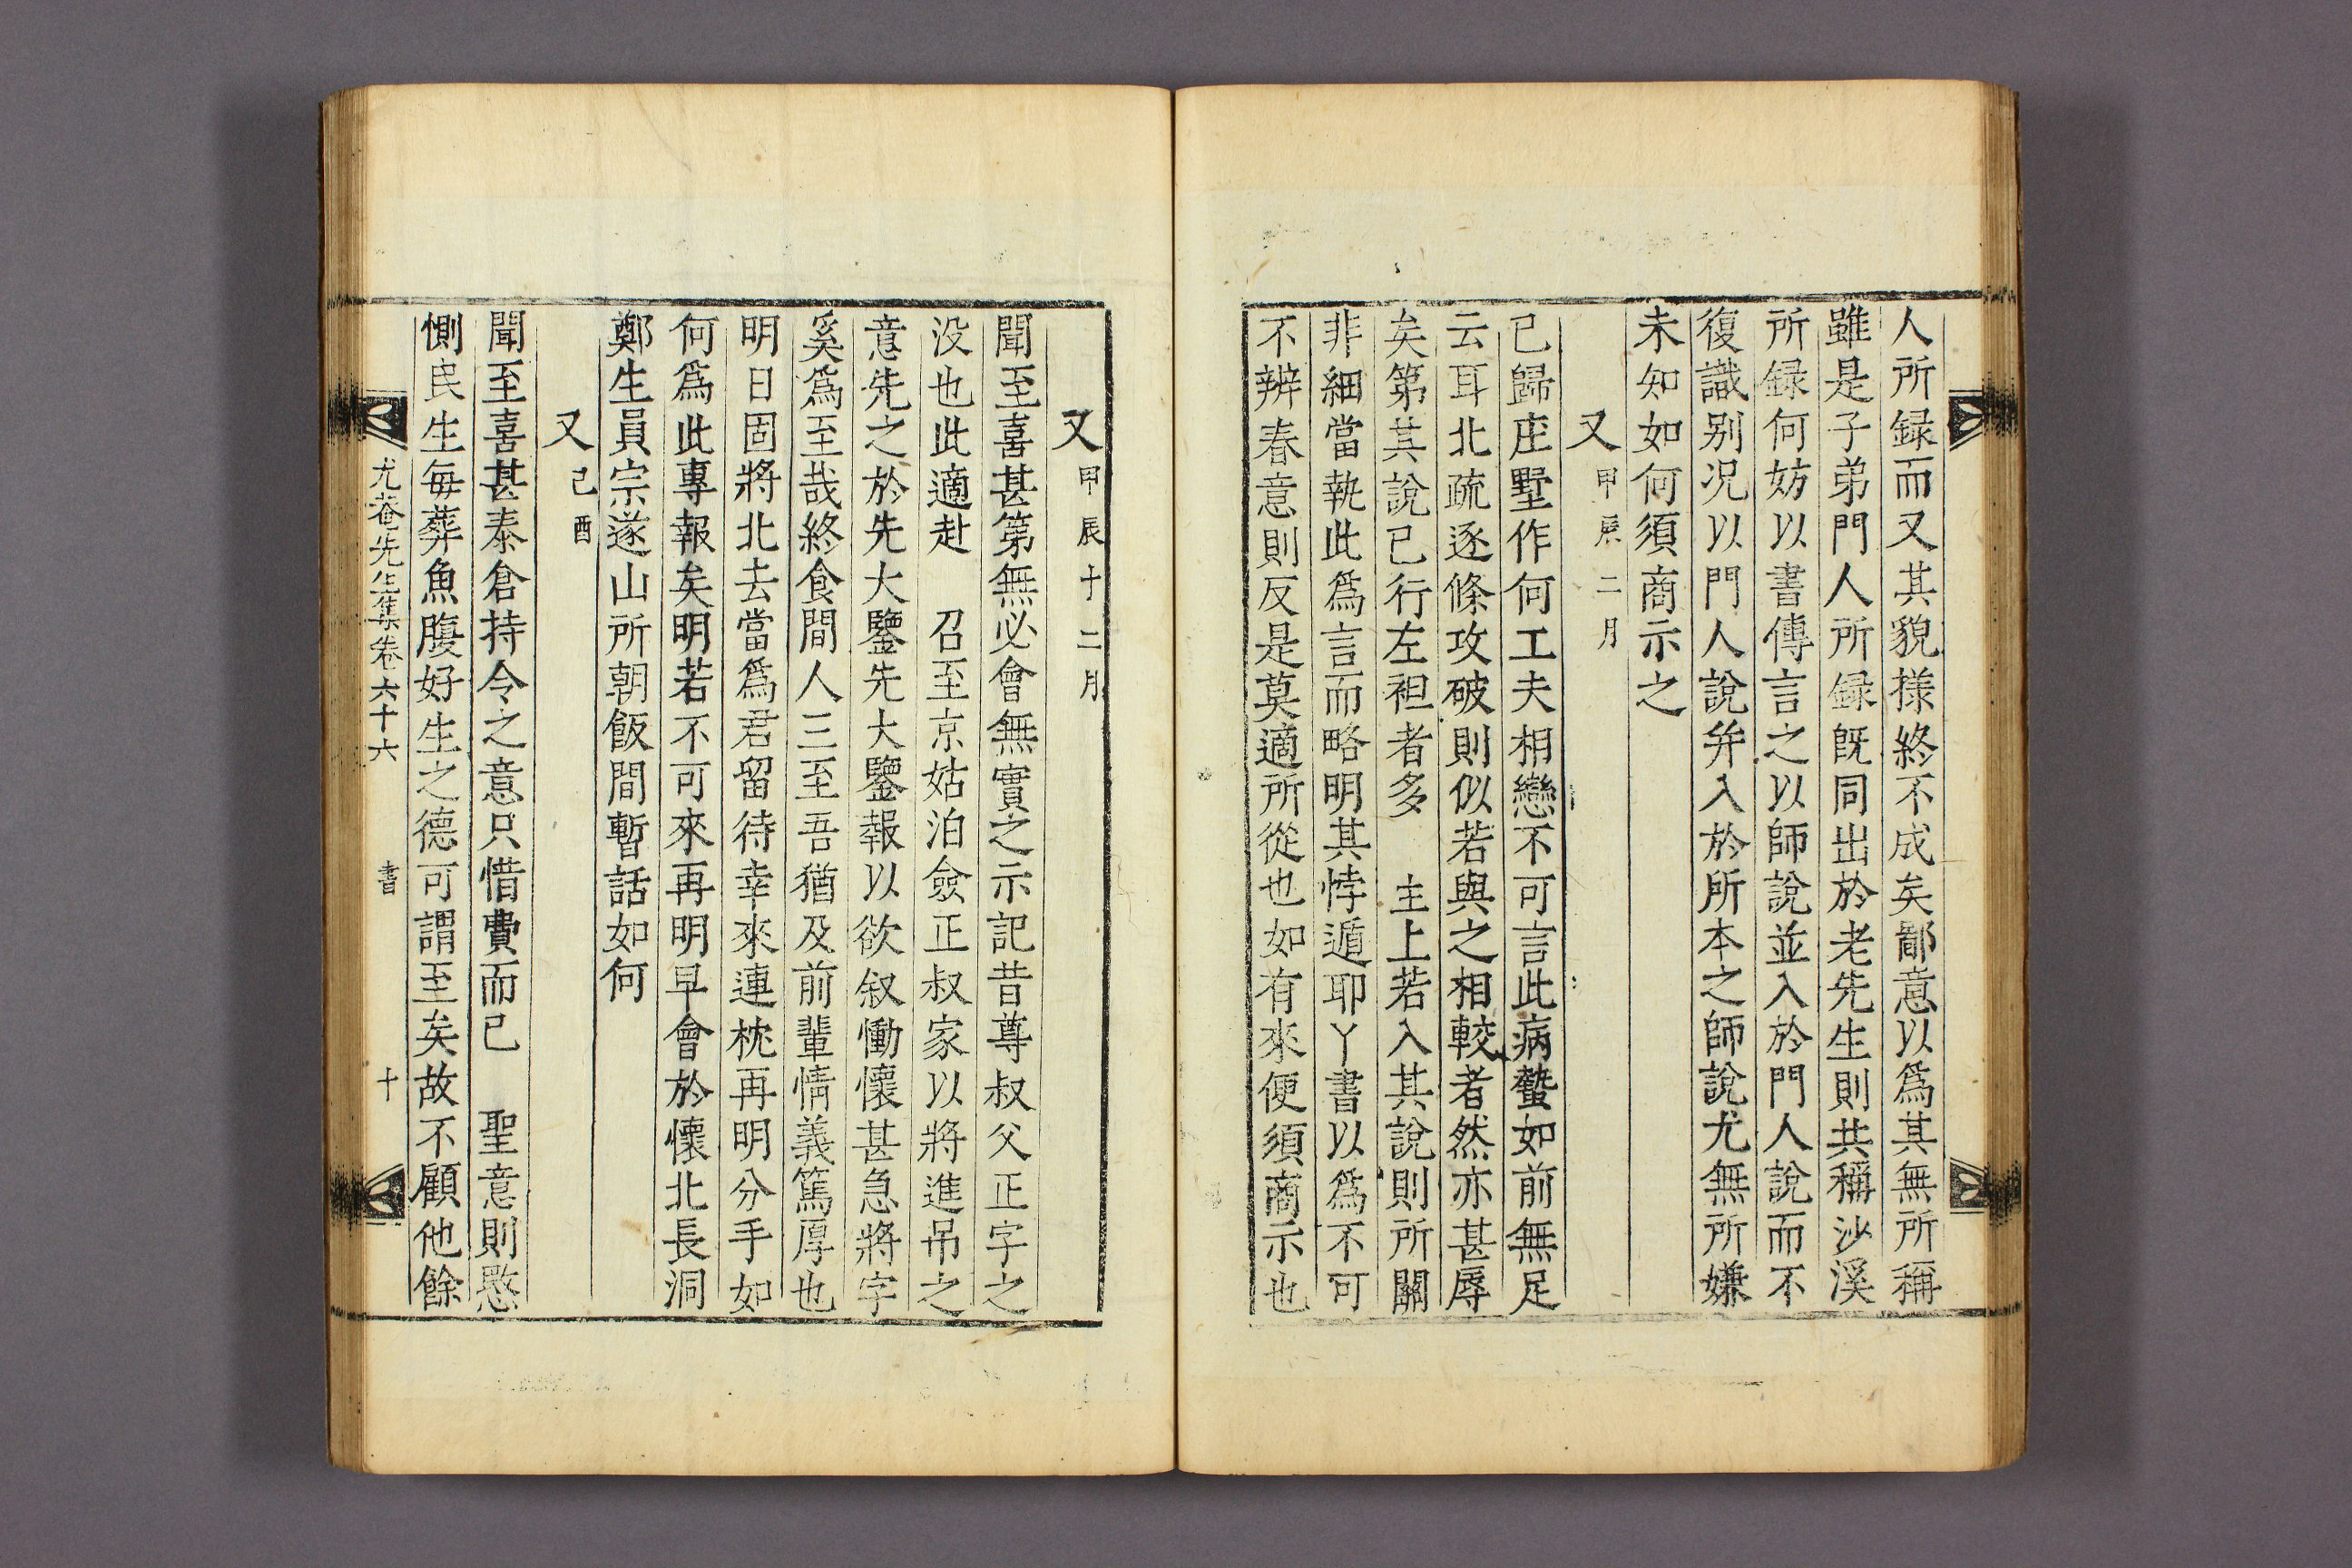 人所録而又其貌樣終不成矣鄙意以爲其無所稱
雖是子弟門人所録旣同出於老先生則共稱沙溪
所録何妨以書傳言之以師說並入於門人說而不
復識别况以門人說幷入於所本之師說尤無所嫌
未知如何須商示之
又甲辰二月
已歸庄墅作何工夫相戀不可言此病蟄如前無足
云耳北疏逐條攻破則似若與之相較者然亦甚辱
矣第其說已行左袒者多 主上若入其說則所關
非細當執此爲言而略明其悖遁耶丫書以爲不可
不辨春意則反是莫適所從也如有來便須商示也
又甲辰十二月
聞至喜甚第無必會無實之示記昔尊叔父正字之
没也此適赴 召至京姑泊僉正叔家以將進吊之
意先之於先大鑒先大鑒報以欲叙慟懷甚急將字
奚爲至哉終食間人三至吾猶及前輩情義篤厚也
明日固將北去當爲君留待幸來連枕再明分手如
何爲此專報矣明若不可來再明早會於懷北長洞
鄭生員宗遂山所朝飯間暫話如何
又己酉
聞至喜甚泰倉持令之意只惜費而已 聖意則愍
惻民生每葬魚腹好生之德可謂至矣故不顧他餘
尤菴先生集卷六十六 書 十